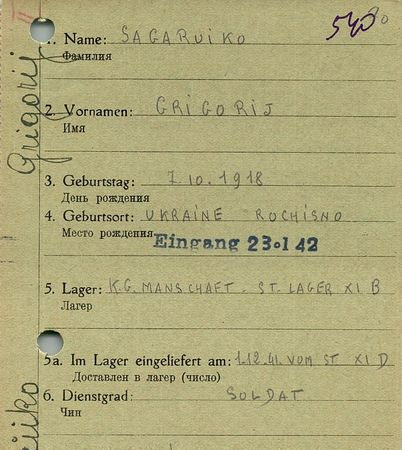 540
1. Name: SAGARUIKO
Фамилия
2. Vornamen: GRIGORIJ
Имя
3. Geburtstag: 7.10.1918
День рождения
4. Geburtsort: UKRAINE ROCHISNO
Место рождения
Eingang 23. 1 42
5. Lager: K.G. MANSCHAFT. ST. LAGER XI B
Лагер
5a. Im Lager eingeliefert am: 1.12.41. VOM ST XI D
Доставлен в лагер (число)
6. Dienstgrad: SOLDAT
Чин
Grigorij